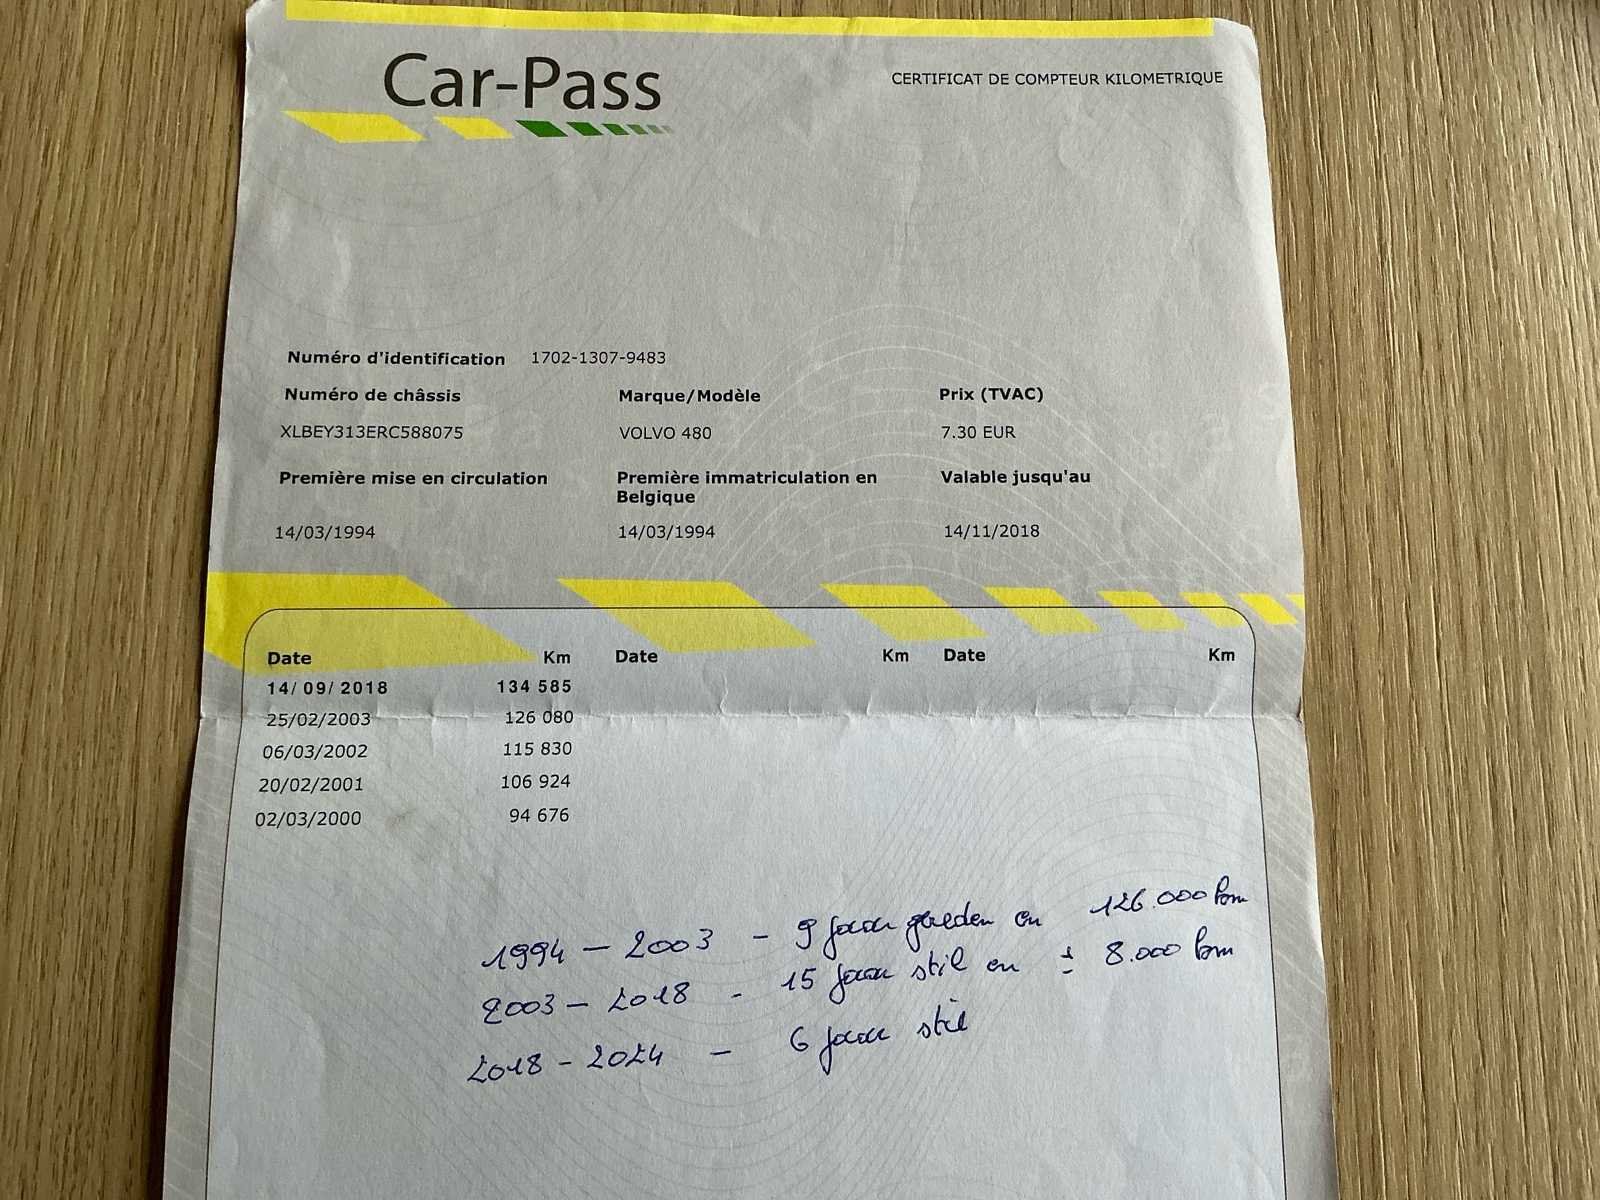 Car-Pass
CERTIFICAT DE COMPTEUR KILOMETRIQUE
Numéro d'identification 1702-1307-9483
Numéro de châssis Marque/Modèle Prix (TVAC)
XLBEY313ERC588075 VOLVO 480 7.30 EUR
Première mise en circulation Première immatriculation en Belgique Valable jusqu'au
14/03/1994 14/03/1994 14/11/2018
Date Km Date Km Date Km
14/09/2018 134 585
25/02/2003 126 080
06/03/2002 115 830
20/02/2001 106 924
02/03/2000 94 676
1994 – 2003 – 9 jaar gereden en 126.000 km
2003 – 2018 - 15 jaar stil en ± 8.000 km
2018 - 2024 – 6 jaar stil